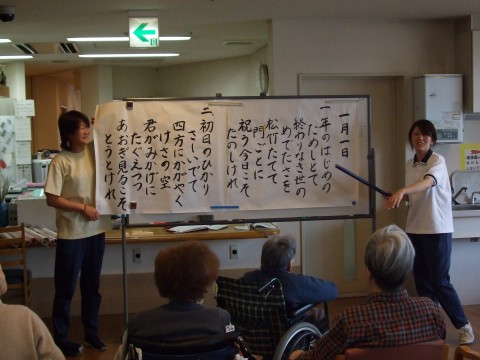 一月一日
一、年のはじめの
ためしとて
終わりなき世の
めでたさを
松竹たてて
門ごとに
祝う今日こそ
たのしけれ
二、初日のひかり
さしいでて
四方にかがやく
けさの空
君がみかげに
たぐえつつ
あおぎ見るこそ
とうとけれ